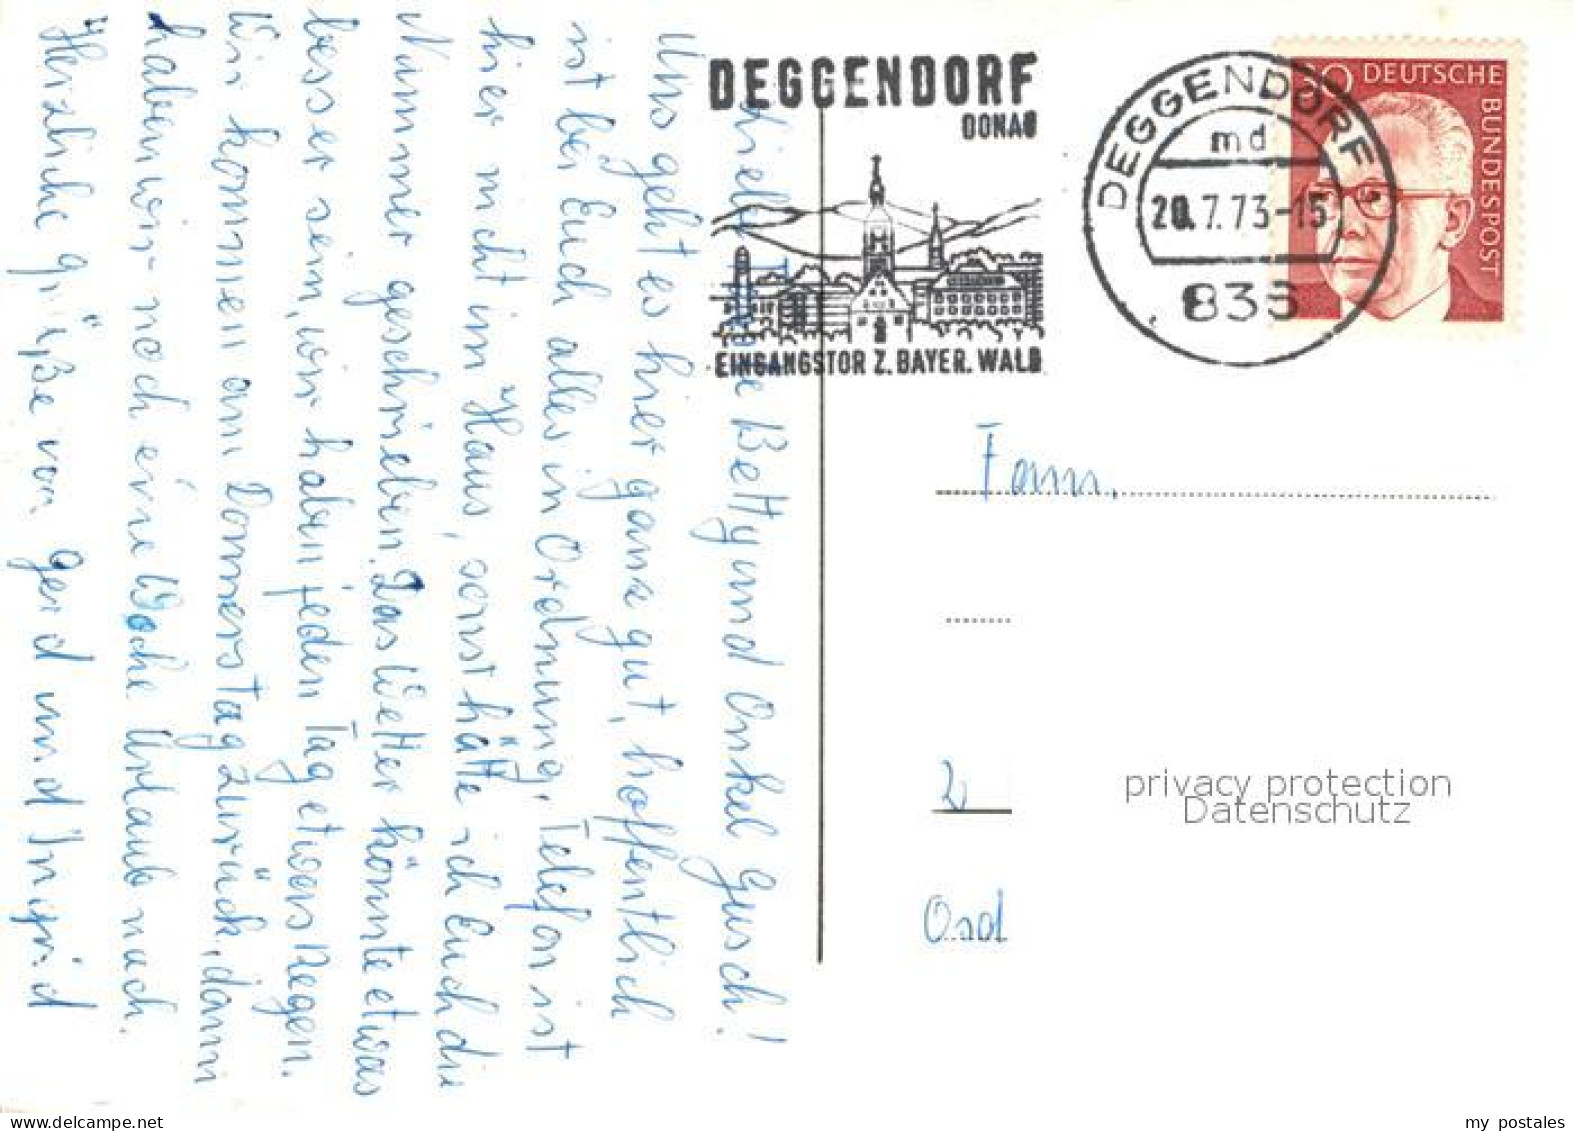 DEGGENDORF
DONAU
EINGANGSTOR Z. BAYER. WALD
DEGGENDORF
md
20.7.73-15
835
30 DEUTSCHE BUNDESPOST
Liebe Tante Betty und Onkel Gusch!
Uns geht es hier ganz gut, hoffentlich
ist bei Euch alles in Ordnung. Telefon ist
hier nicht im Haus, sonst hätte ich Euch die
Nummer geschrieben. Das Wetter könnte etwas
besser sein, wir haben jeden Tag etwas Regen.
Wir kommen am Donnerstag zurück, dann
haben wir noch eine Woche Urlaub nach.
Herzliche Grüße von Gerd und Ingrid
Fam.
2
privacy protection
Datenschutz
my postales